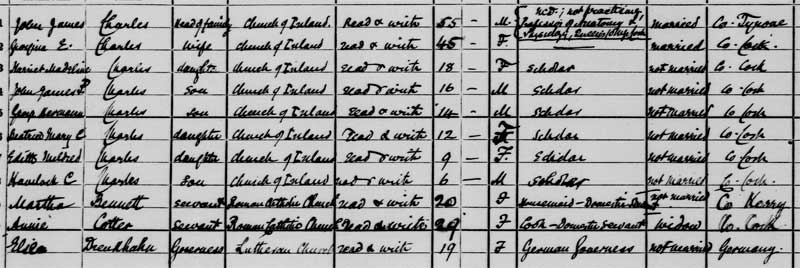 1 John James Charles Head of family Church of Ireland Read & write 55 - M M.D; not practising, Professor of Anatomy & Queen's College Cork married Co. Tyrone
2 Georgina E. Charles wife Church of Ireland read & write 45 - F. married Co. Cork.
3 Harriet Madeline Charles daughter Church of Ireland read & write 18 - F Scholar not married Co. Cork
John James Charles son Church of Ireland read & write 16 - M Scholar not married Co. Cork
Charles son Church of Ireland read & write 14 - M Scholar not married Co. Cork
Mary E Charles daughter Church of Ireland read & write 12 - F Scholar not married Co. Cork
7 Edith Mildred Charles daughter Church of Ireland read & write 9 - F. Scholar not married Co. Cork
Havelock C Charles son Church of Ireland read & write 6 - M Scholar not married Co. Cork.
Martha Bennett servant Roman Catholic Church read & write 20 F Housemaid - Domestic Servant not married Co Kerry
Annie Cotter servant Roman Catholic Church read & write 29 F Cook - Domestic Servant widow Co. Cork
Governess Lutheran Church read & write 19 F German Governess not married Germany.